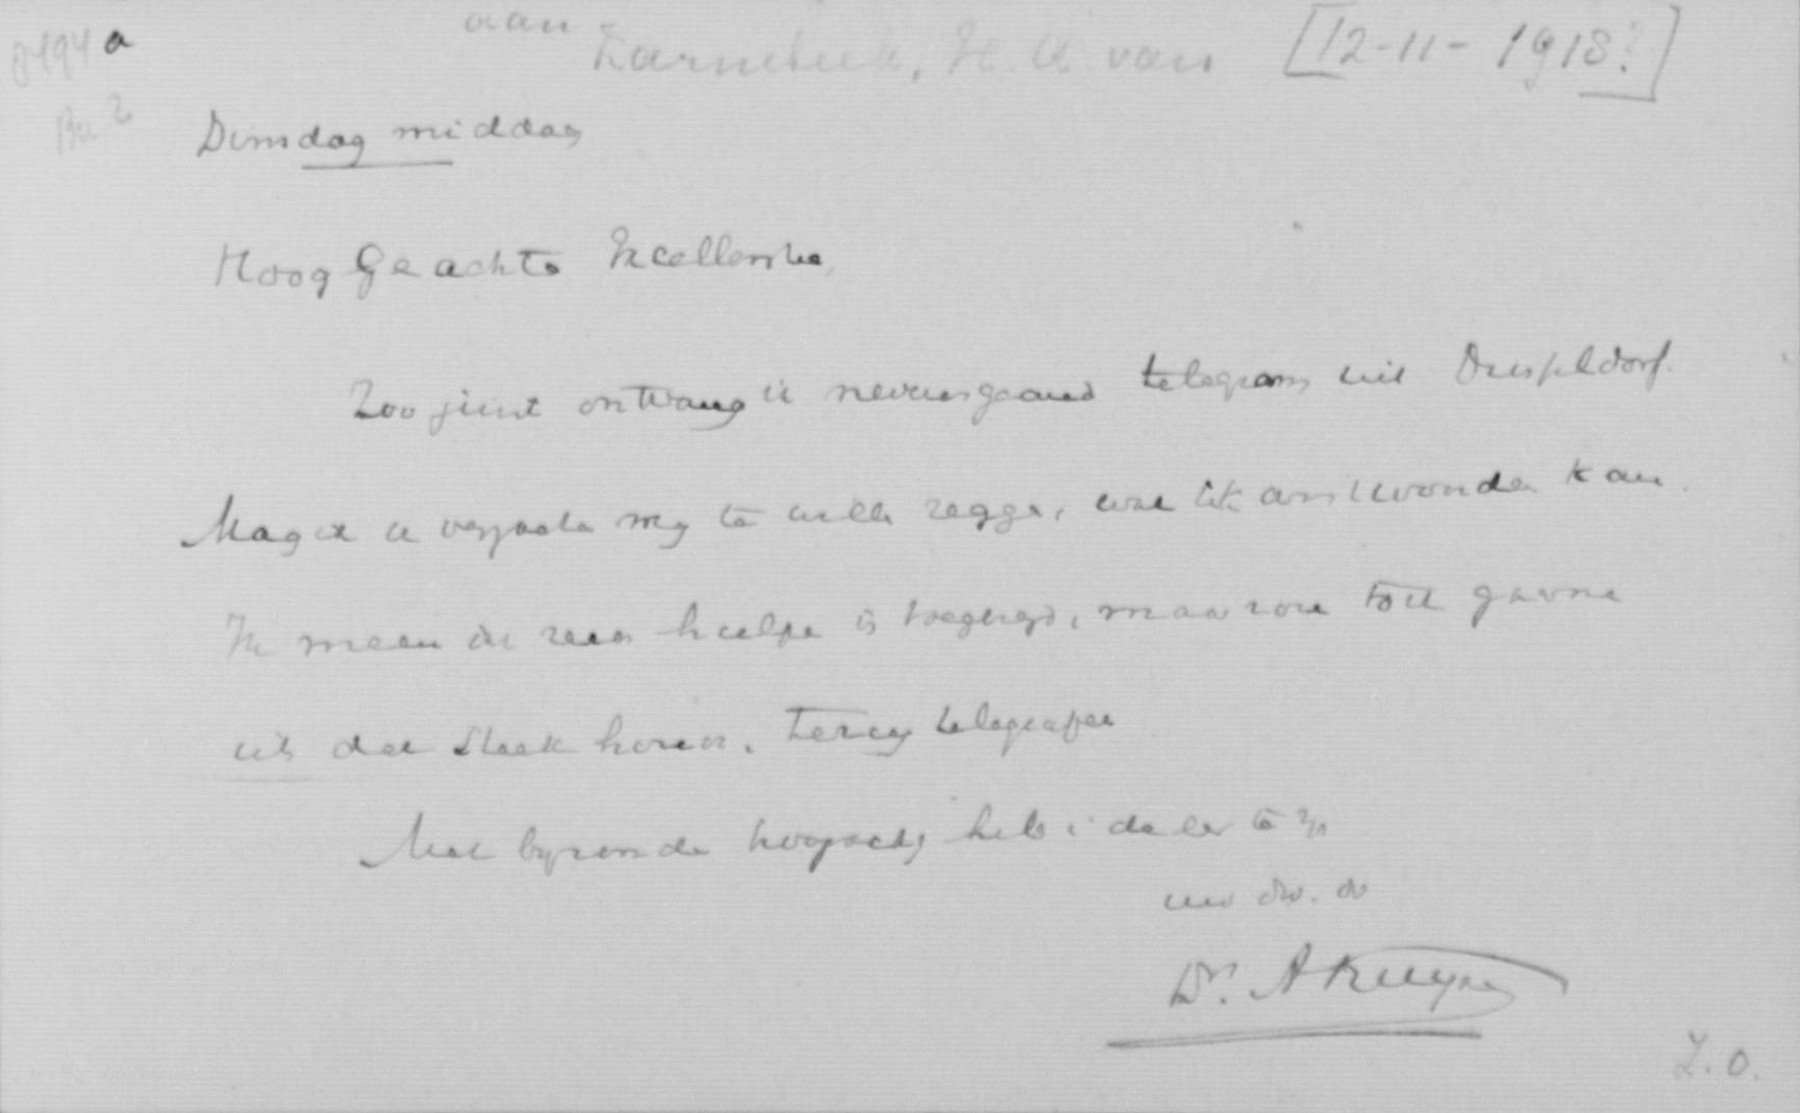 8494 a
aan
Karnebeek, H. A. van [12-11-1918?]
Br 2
Dinsdag middag
Hoog Geachte Excellentie,
Zoo juist ontvang ik nevensgaand telegram uit Dusseldorf.
Mag ik u verzoeken my te willen zeggen, wat ik antwoorden kan.
Ik meen dat reeds hulpe is toegezegd, maar zou toch gaarne
uit dat stuk horen. Terug telegrafeer
Met byzondere hoogacht heb i de eer te zyn
uw dw. dr
Dr. A Kuyper
Z.O.